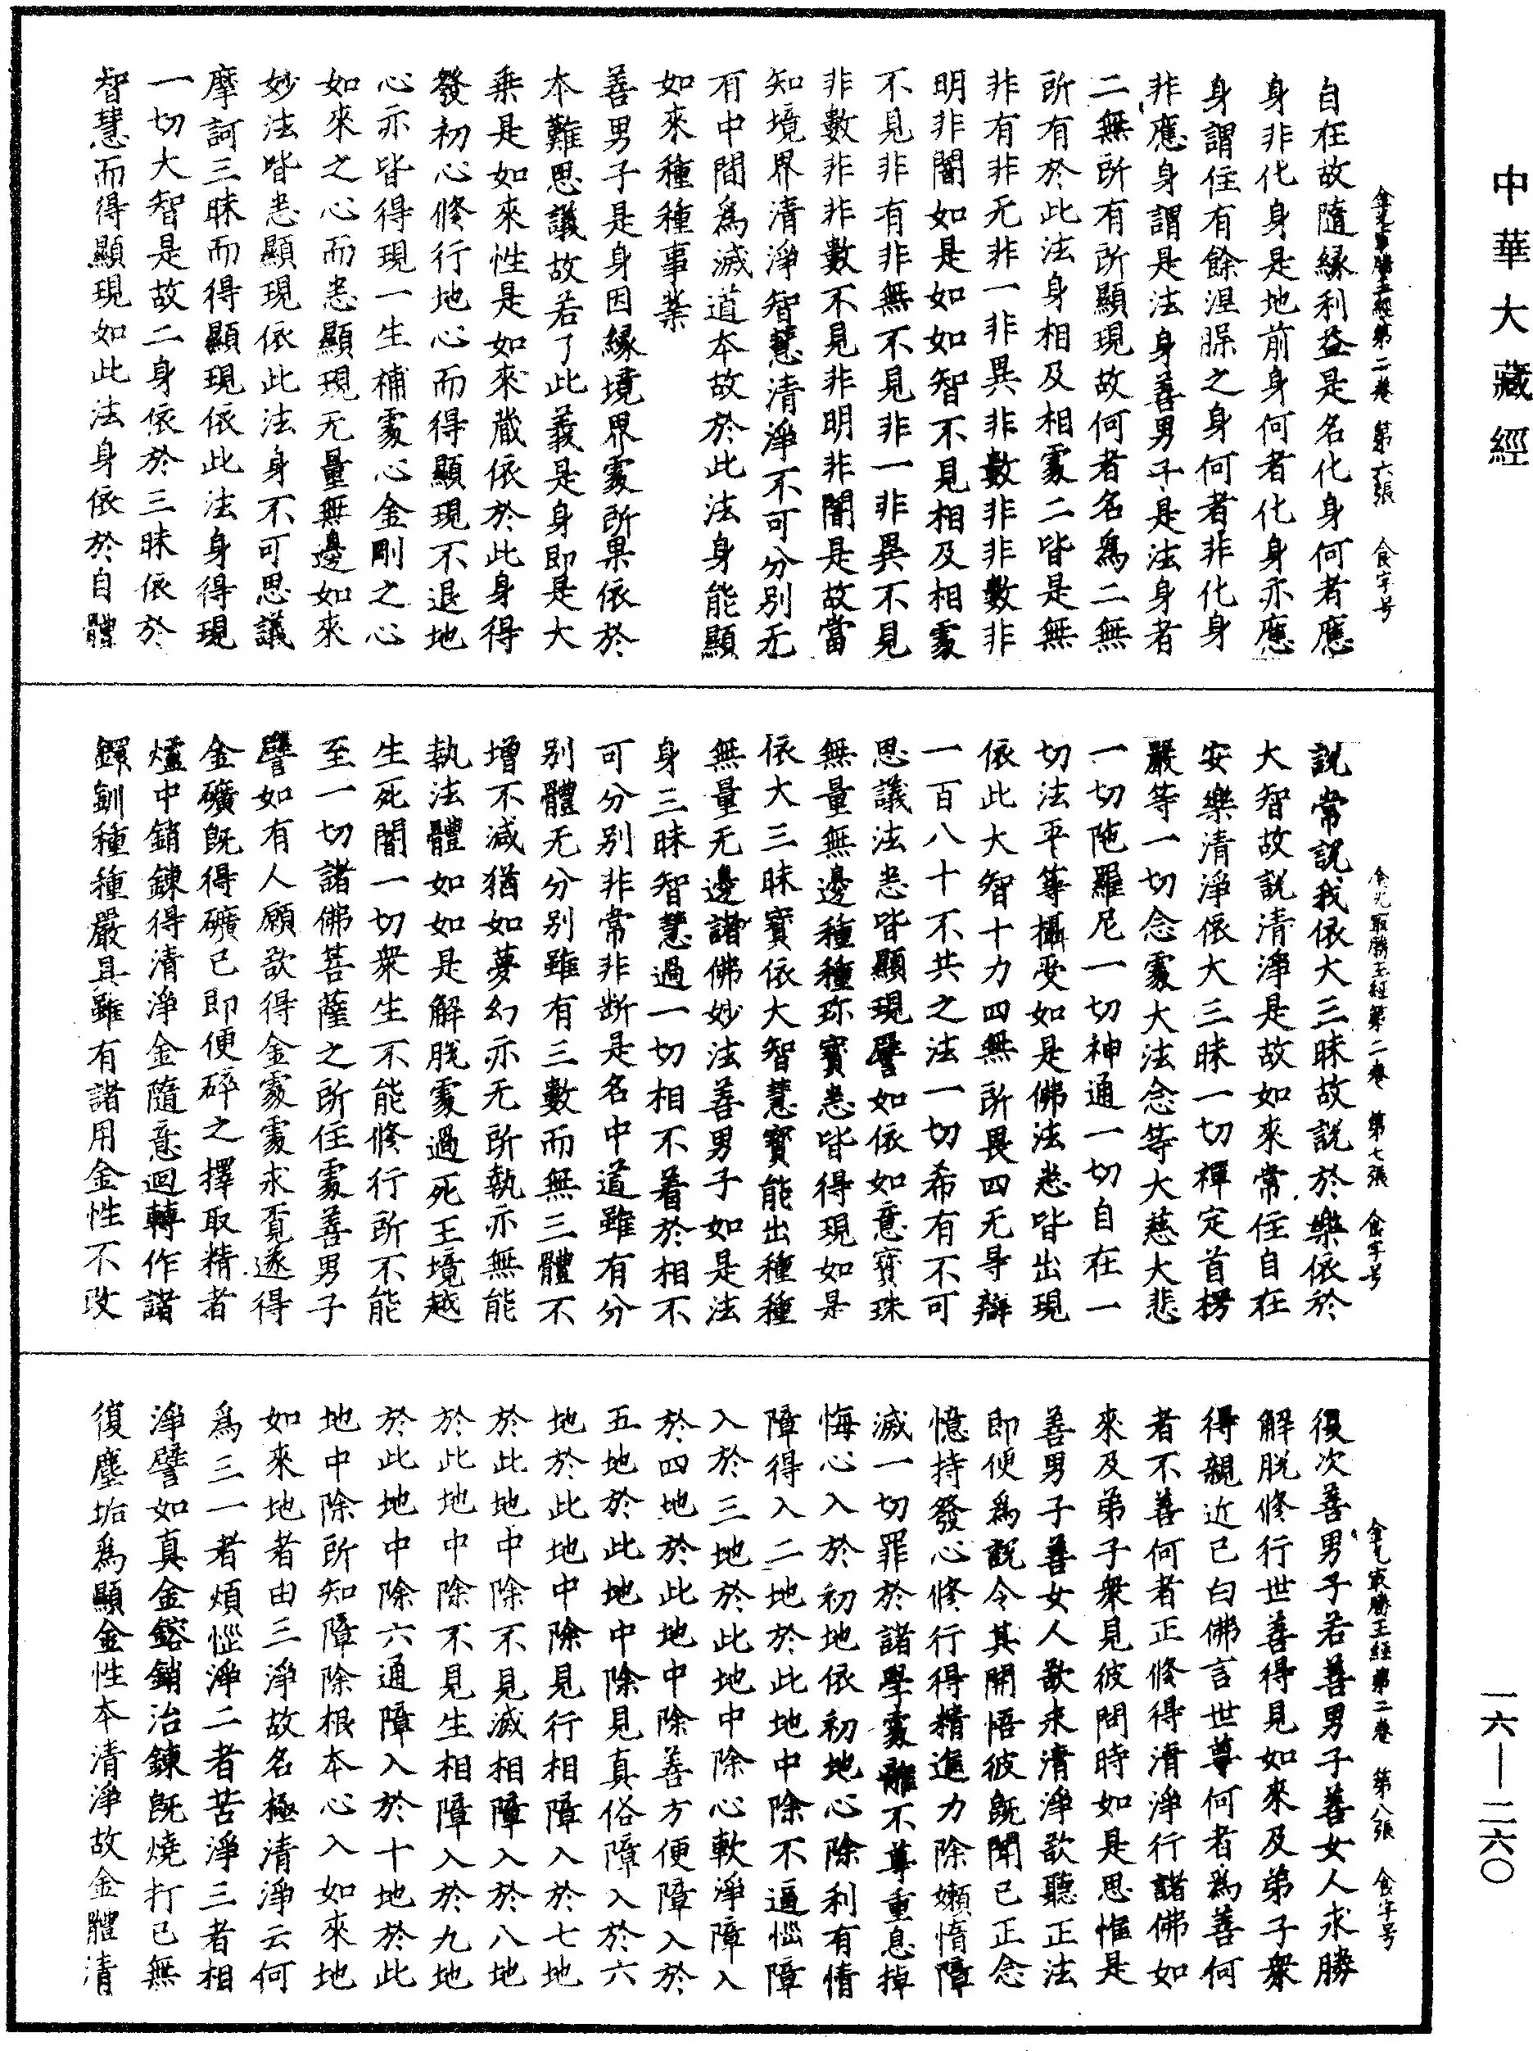 中華大藏經
金光最勝王經第二卷 第六張 食字号
自在故隨緣利益是名化身何者應
身非化身是地前身何者化身亦應
身謂住有餘涅脲之身何者非化身
非應身謂是法身善男子是法身者
二無所有所顯現故何者名為二無
所有於此法身相及相處二皆是無
非有非无非一非異非數非非數非
明非闇如是如如智不見相及相處
不見非有非無不見非一非異不見
非數非非數不見非明非闇是故當
知境界清淨智慧清淨不可分別无
有中間為滅道本故於此法身能顯
如來種種事業
善男子是身因緣境界處所果依於
本難思議故若了此義是身即是大
乗是如來性是如來藏依於此身得
發初心修行地心而得顯現不退地
心亦皆得現一生補處心金剛之心
如來之心而悉顯現无量無邊如來
妙法皆悉顯現依此法身不可思議
摩訶三昧而得顯現依此法身得現
一切大智是故二身依於三昧依於
智慧而得顯現如此法身依於自體
金光最勝王經第二卷 第七張 食字号
說常說我依大三昧故說於樂依於
大智故說清淨是故如來常住自在
安樂清淨依大三昧一切禪定首楞
嚴等一切念處大法念等大慈大悲
一切陁羅尼一切神通一切自在一
切法平等攝受如是佛法悉皆出現
依此大智十力四無所畏四无㝵辯
一百八十不共之法一切希有不可
思議法悉皆顯現譬如依如意寶珠
無量無邊種種珎寶悉皆得現如是
依大三昧寶依大智慧寶能出種種
無量无邊諸佛妙法善男子如是法
身三昧智慧過一切相不著於相不
可分別非常非斷是名中道雖有分
別體无分別雖有三數而無三體不
增不減猶如夢幻亦无所執亦無能
執法體如如是解脫處過死王境越
生死闇一切衆生不能修行所不能
至一切諸佛菩薩之所住處善男子
譬如有人願欲得金處處求覓遂得
金礦旣得礦已即便碎之擇取精者
爐中銷鍊得清淨金隨意迴轉作諸
鐶釧種種嚴具雖有諸用金性不改
金光最勝王經第二卷 第八張 食字号
復次善男子若善男子善女人求勝
解脫修行世善得見如來及弟子衆
得親近已白佛言世尊何者為善何
者不善何者正修得清淨行諸佛如
來及弟子衆見彼問時如是思惟是
善男子善女人欲求清淨欲聽正法
即便為說令其開悟彼旣聞已正念
憶持發心修行得精進力除嬾惰障
滅一切罪於諸學處離不尊重息掉
悔心入於初地依初地心除利有情
障得入二地於此地中除不逼惱障
入於三地於此地中除心軟淨障入
於四地於此地中除善方便障入於
五地於此地中除見真俗障入於六
地於此地中除見行相障入於七地
於此地中除不見滅相障入於八地
於此地中除不見生相障入於九地
於此地中除六通障入於十地於此
地中除所知障除根本心入如來地
如來地者由三淨故名極清淨云何
為三一者煩惱淨二者苦淨三者相
淨譬如真金鎔銷治鍊旣燒打已無
復塵垢為顯金性本清淨故金體清
一六—二六〇